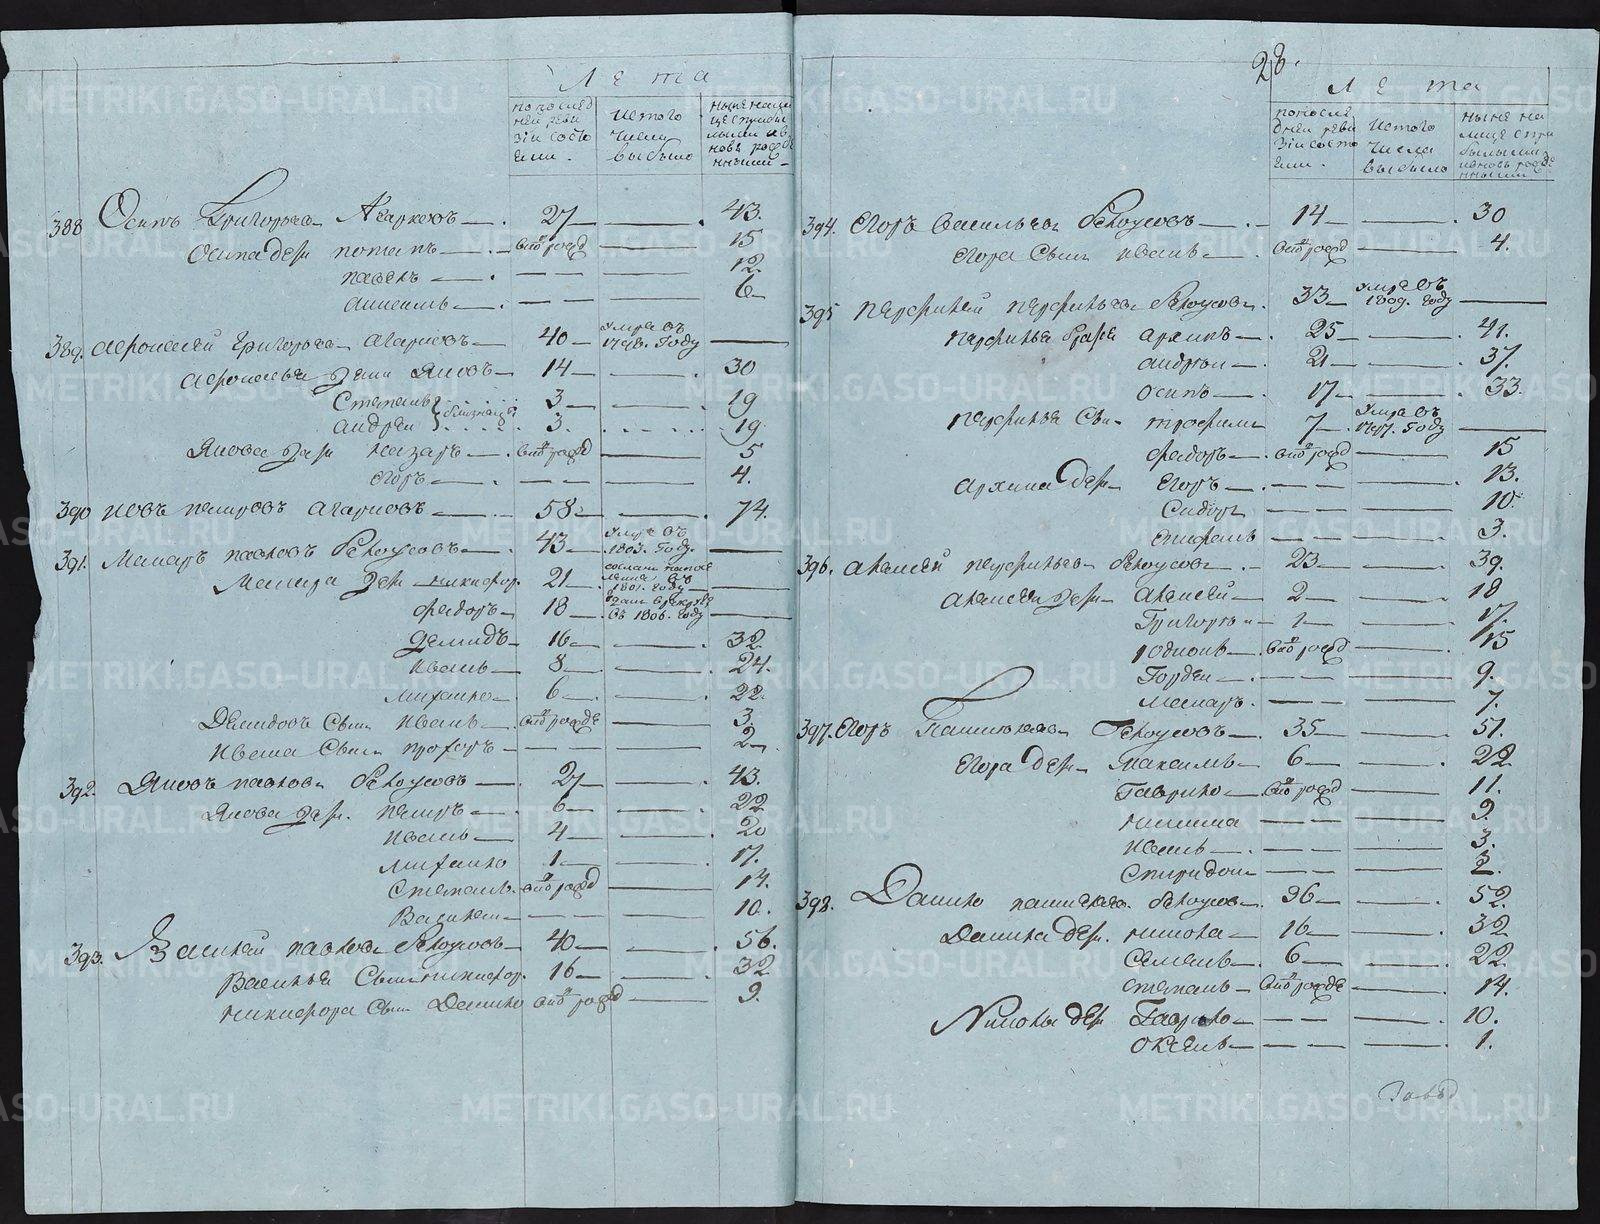 Лета
попослед
ней реви
зiи состо
яли.
изтого
числа
выбыло
ныне нали
це сприбы
лыми и в
новь рожде
нными
388 Осипъ Григорьевъ Агарковъ 27 43.
Осипа дети потапъ внов рожд 15
павелъ 12
6
389. Григорьевъ агарковъ 40 умре въ 179. Году
дети Яковъ 14 30
Степанъ близнецы 3 19
андрей 3. 19
Якова дети назаръ внов рожд 5
егоръ 4.
390 иовъ петровъ агарковъ 58 74.
391. Макаръ павловъ Белоусовъ 43 умре въ 1803. Году.
Макара дети никифор 21 1801. Году
федоръ 18 отдан в рекруты въ 1806. Году
демидъ 16 32
иванъ 8 24.
михайло 6 22.
Демидовъ сынъ иванъ внов рожде 3.
ивана сынъ прохоръ 2
392. Яковъ павлов Белоусовъ 27 43.
Якова дети петръ 6 22
иванъ 4 20
михайло 1 17.
Степанъ внов рожд 14.
Василеи 10.
393. Василей павлов Белоусовъ 40 56.
Василья сынъ никифор. 16 32
никифора сынъ Данило внов рожд 9.
28.
Лета
попосле
дней реви
зiи состо
яли.
изтого
числа
выбыло
ныне на
лице с при
былыми
ивновь рожде
нными
394. Егоръ Васильевъ Белоусовъ 14 30
Егора сынъ иванъ внов рожд 4.
395 парфеней парфеньевъ Белоусовъ. 33 умре въ 1809. Году
парфенья братья архипъ 25 41.
андреи 21 37.
осипъ 17 33.
парфенья сынъ трофимъ 7 умре въ 1797. Году
федоръ внов рожд 15
архипа дети Егоръ 13.
Сидоръ 10.
3.
396. алексей парфеньевъ Белоусовъ 23 39.
алексея дети алексей 2 18
Григореи 1 17.
родионъ внов рожд 15
Гордеи 9.
макаръ 7.
397. Егоръ Белоусовъ 35 51.
Егора дети максимъ 6 22
Гаврило внов рожд 11.
никита 9.
иванъ 3.
Спиридон 2.
398. Данило Белоусов 36 52.
Данила дети никола 16 32
Семенъ 6 22.
степанъ внов рожде 14.
Николы дети Гаврило 10.
1.
Завод